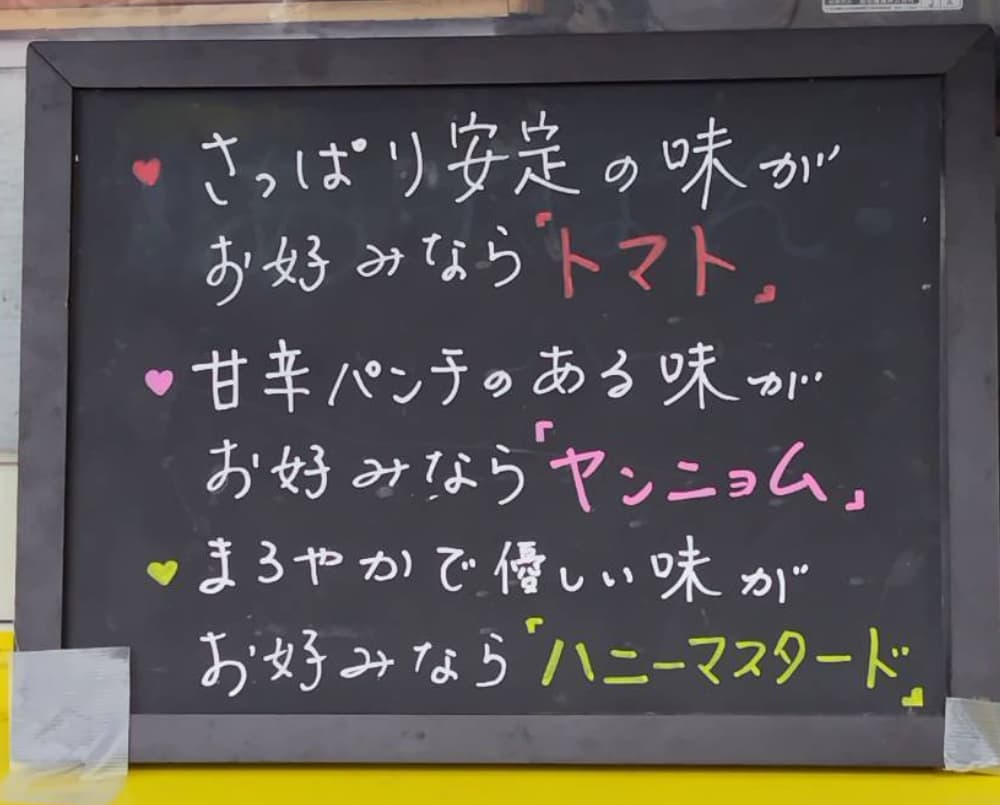 ♥さっぱり安定の味が
お好みなら「トマト」
♥甘辛パンチのある味が
お好みなら「ヤンニョム」
♥まろやかで優しい味が
お好みなら「ハニーマスタード」